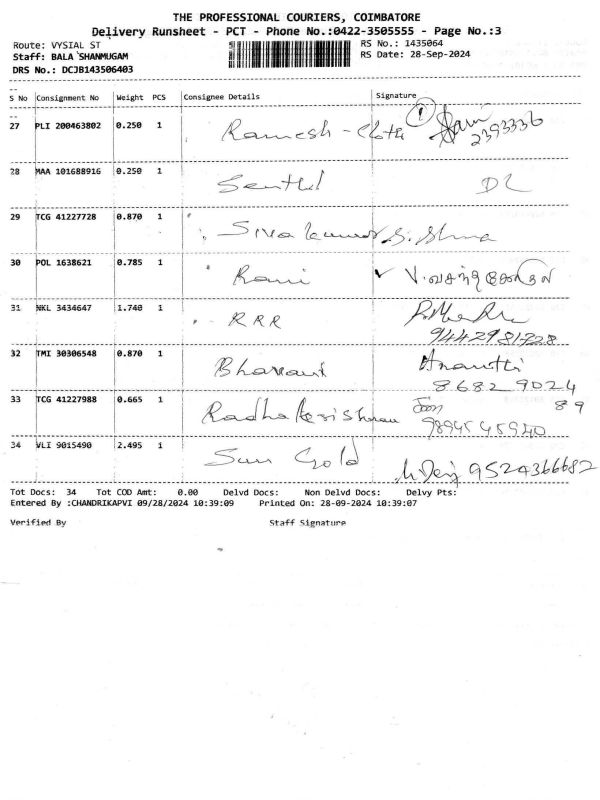 THE PROFESSIONAL COURIERS, COIMBATORE
Delivery Runsheet - PCT - Phone No.:0422-3505555 - Page No.:3
Route: VYSIAL ST RS No.: 1435064
Staff: BALA SHANMUGAM RS Date: 28-Sep-2024
DRS No.: DCJB143506403
S No Consignment No Weight PCS Consignee Details Signature
27 PLI 200463802 0.250 1 Ramesh - Cloth 1 2393336
28 MAA 101688916 0.250 1 Senthil DL
29 TCG 41227728 0.870 1 Sivakumar S.
30 POL 1638621 0.785 1 Rani V.
31 NKL 3434647 1.740 1 RRR
9442981728
32 TMI 30306548 0.870 1 Bhavani Ananthi
86829024
89
33 TCG 41227988 0.665 1 Radhakrishnan
9894545940
34 VLI 9015490 2.495 1 Sun Gold 9524366682
Tot Docs: 34 Tot COD Amt: 0.00 Delvd Docs: Non Delvd Docs: Delvy Pts:
Entered By :CHANDRIKAPVI 09/28/2024 10:39:09 Printed On: 28-09-2024 10:39:07
Verified By Staff Signature